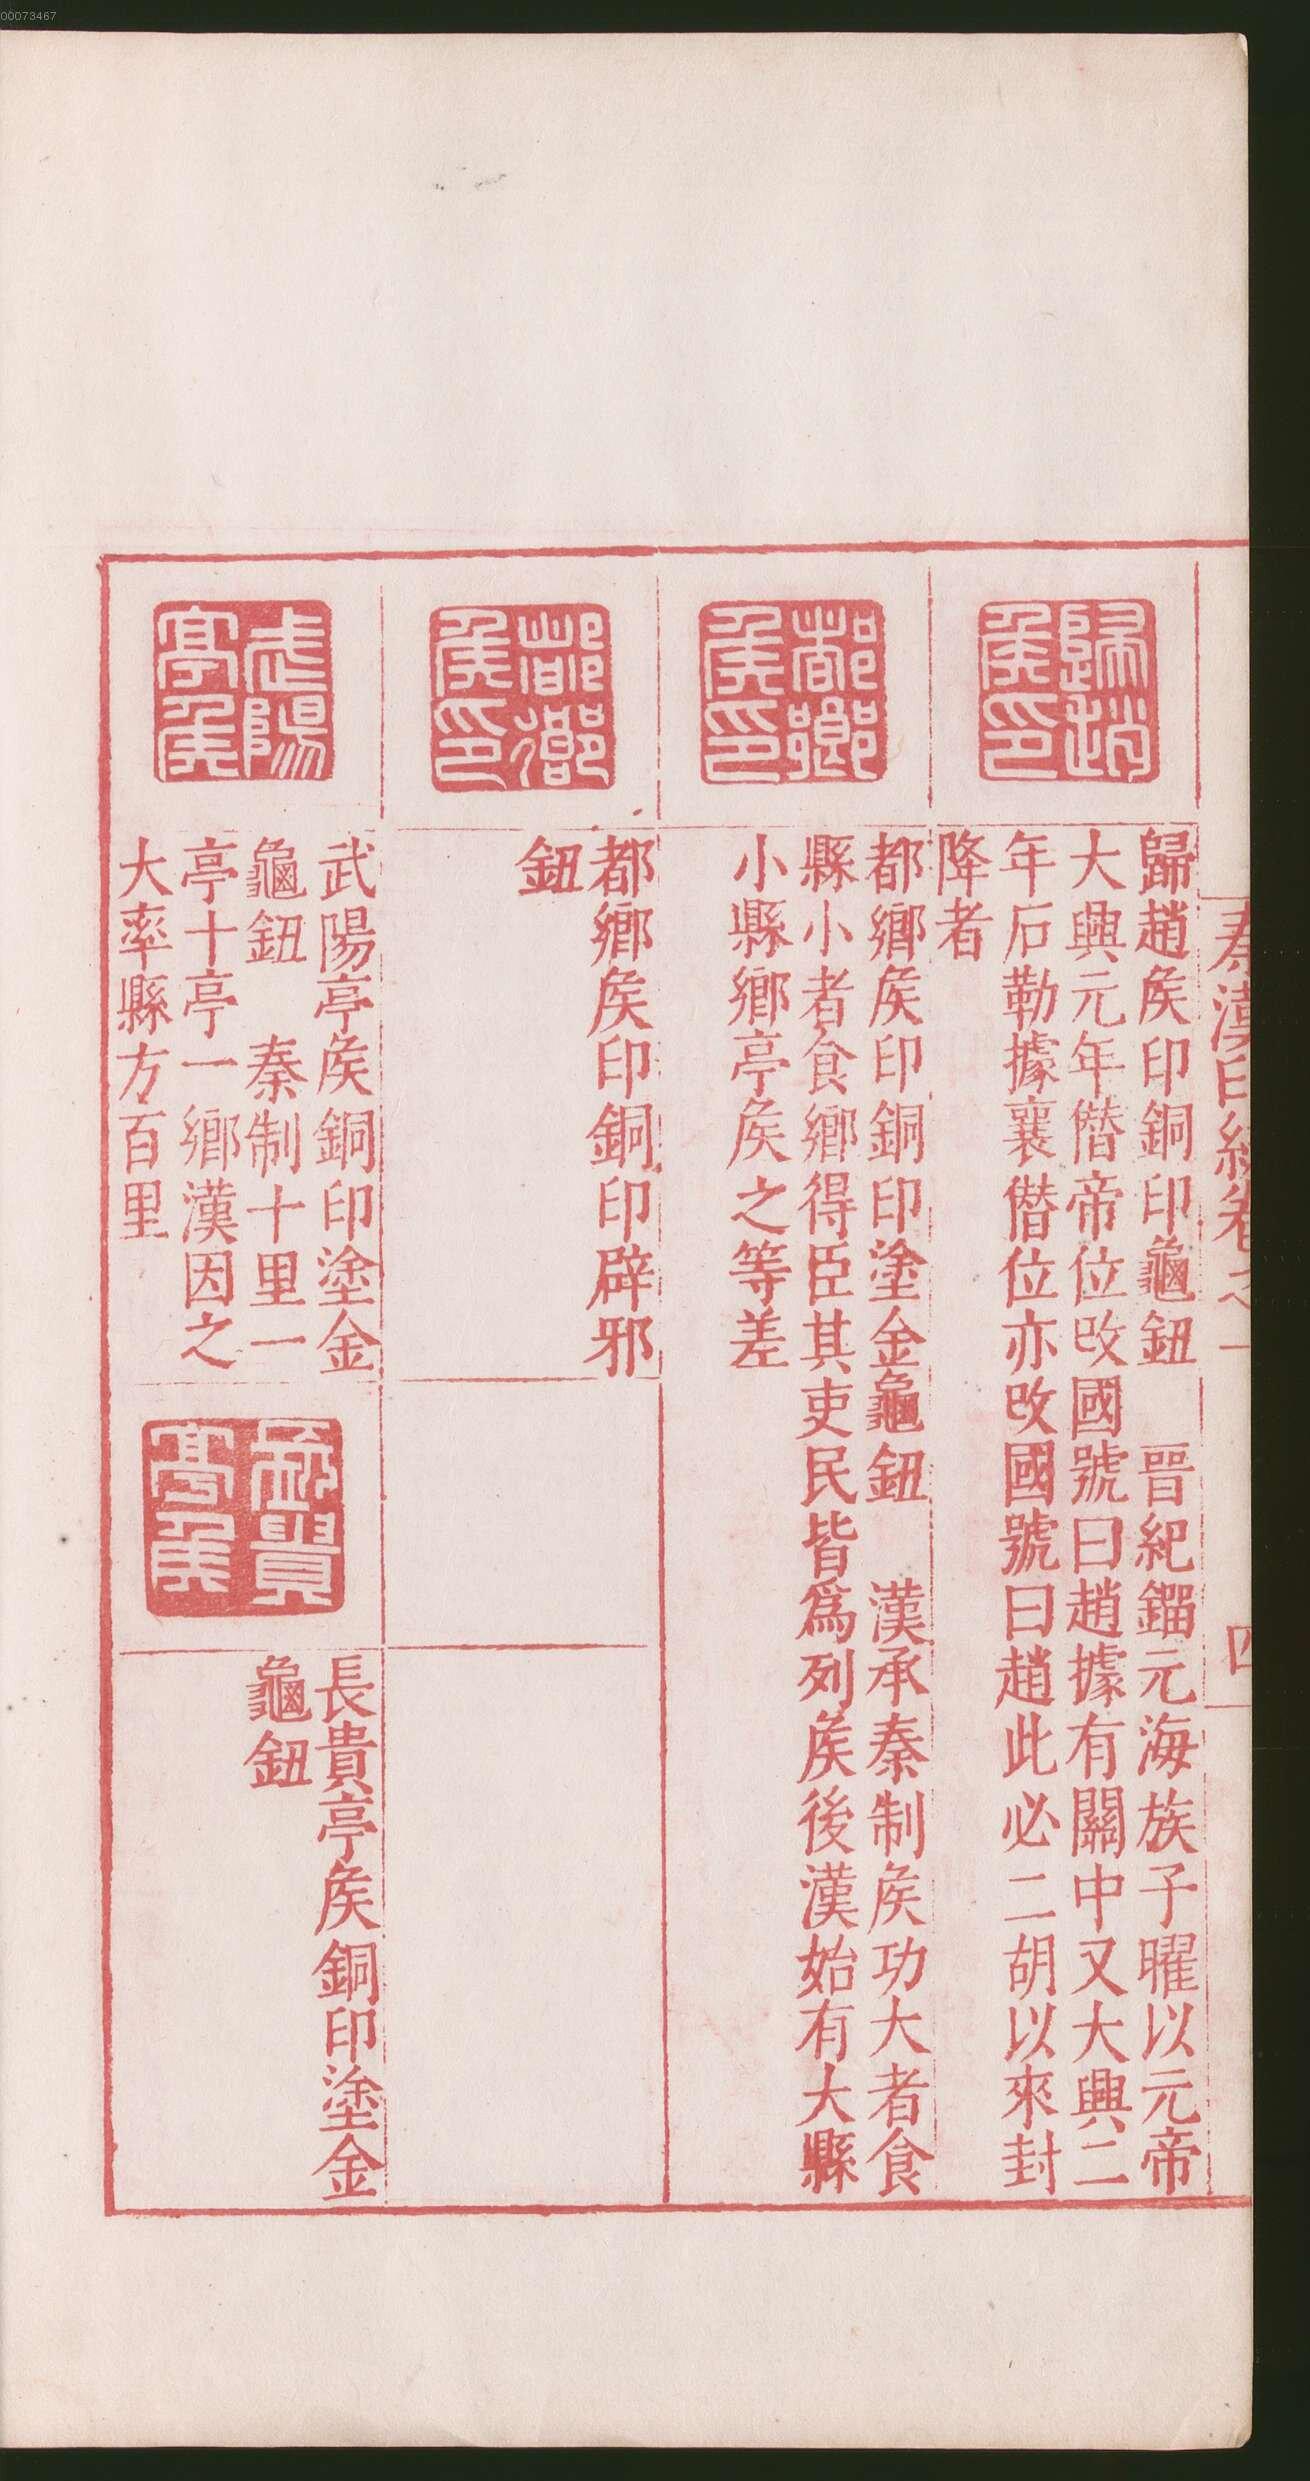 00073467
秦漢印統卷之一
四
歸趙侯印
歸趙矦印銅印龜鈕　晉紀鎦元海族子曜以元帝
大興元年僭帝位攺國號曰趙據有關中又大興二
年石勒據襄僭位亦攺國號曰趙此必二胡以來封
降者
都鄉侯印
都鄉矦印銅印塗金龜鈕　漢承秦制矦功大者食
縣小者食鄉得臣其吏民皆爲列矦後漢始有大縣
小縣鄉亭矦之等差
都鄉侯印
都鄉矦印銅印辟邪
鈕
武陽亭侯
武陽亭矦銅印塗金
龜鈕　秦制十里一
亭十亭一鄉漢因之
大率縣方百里
長貴亭侯
長貴亭矦銅印塗金
龜鈕